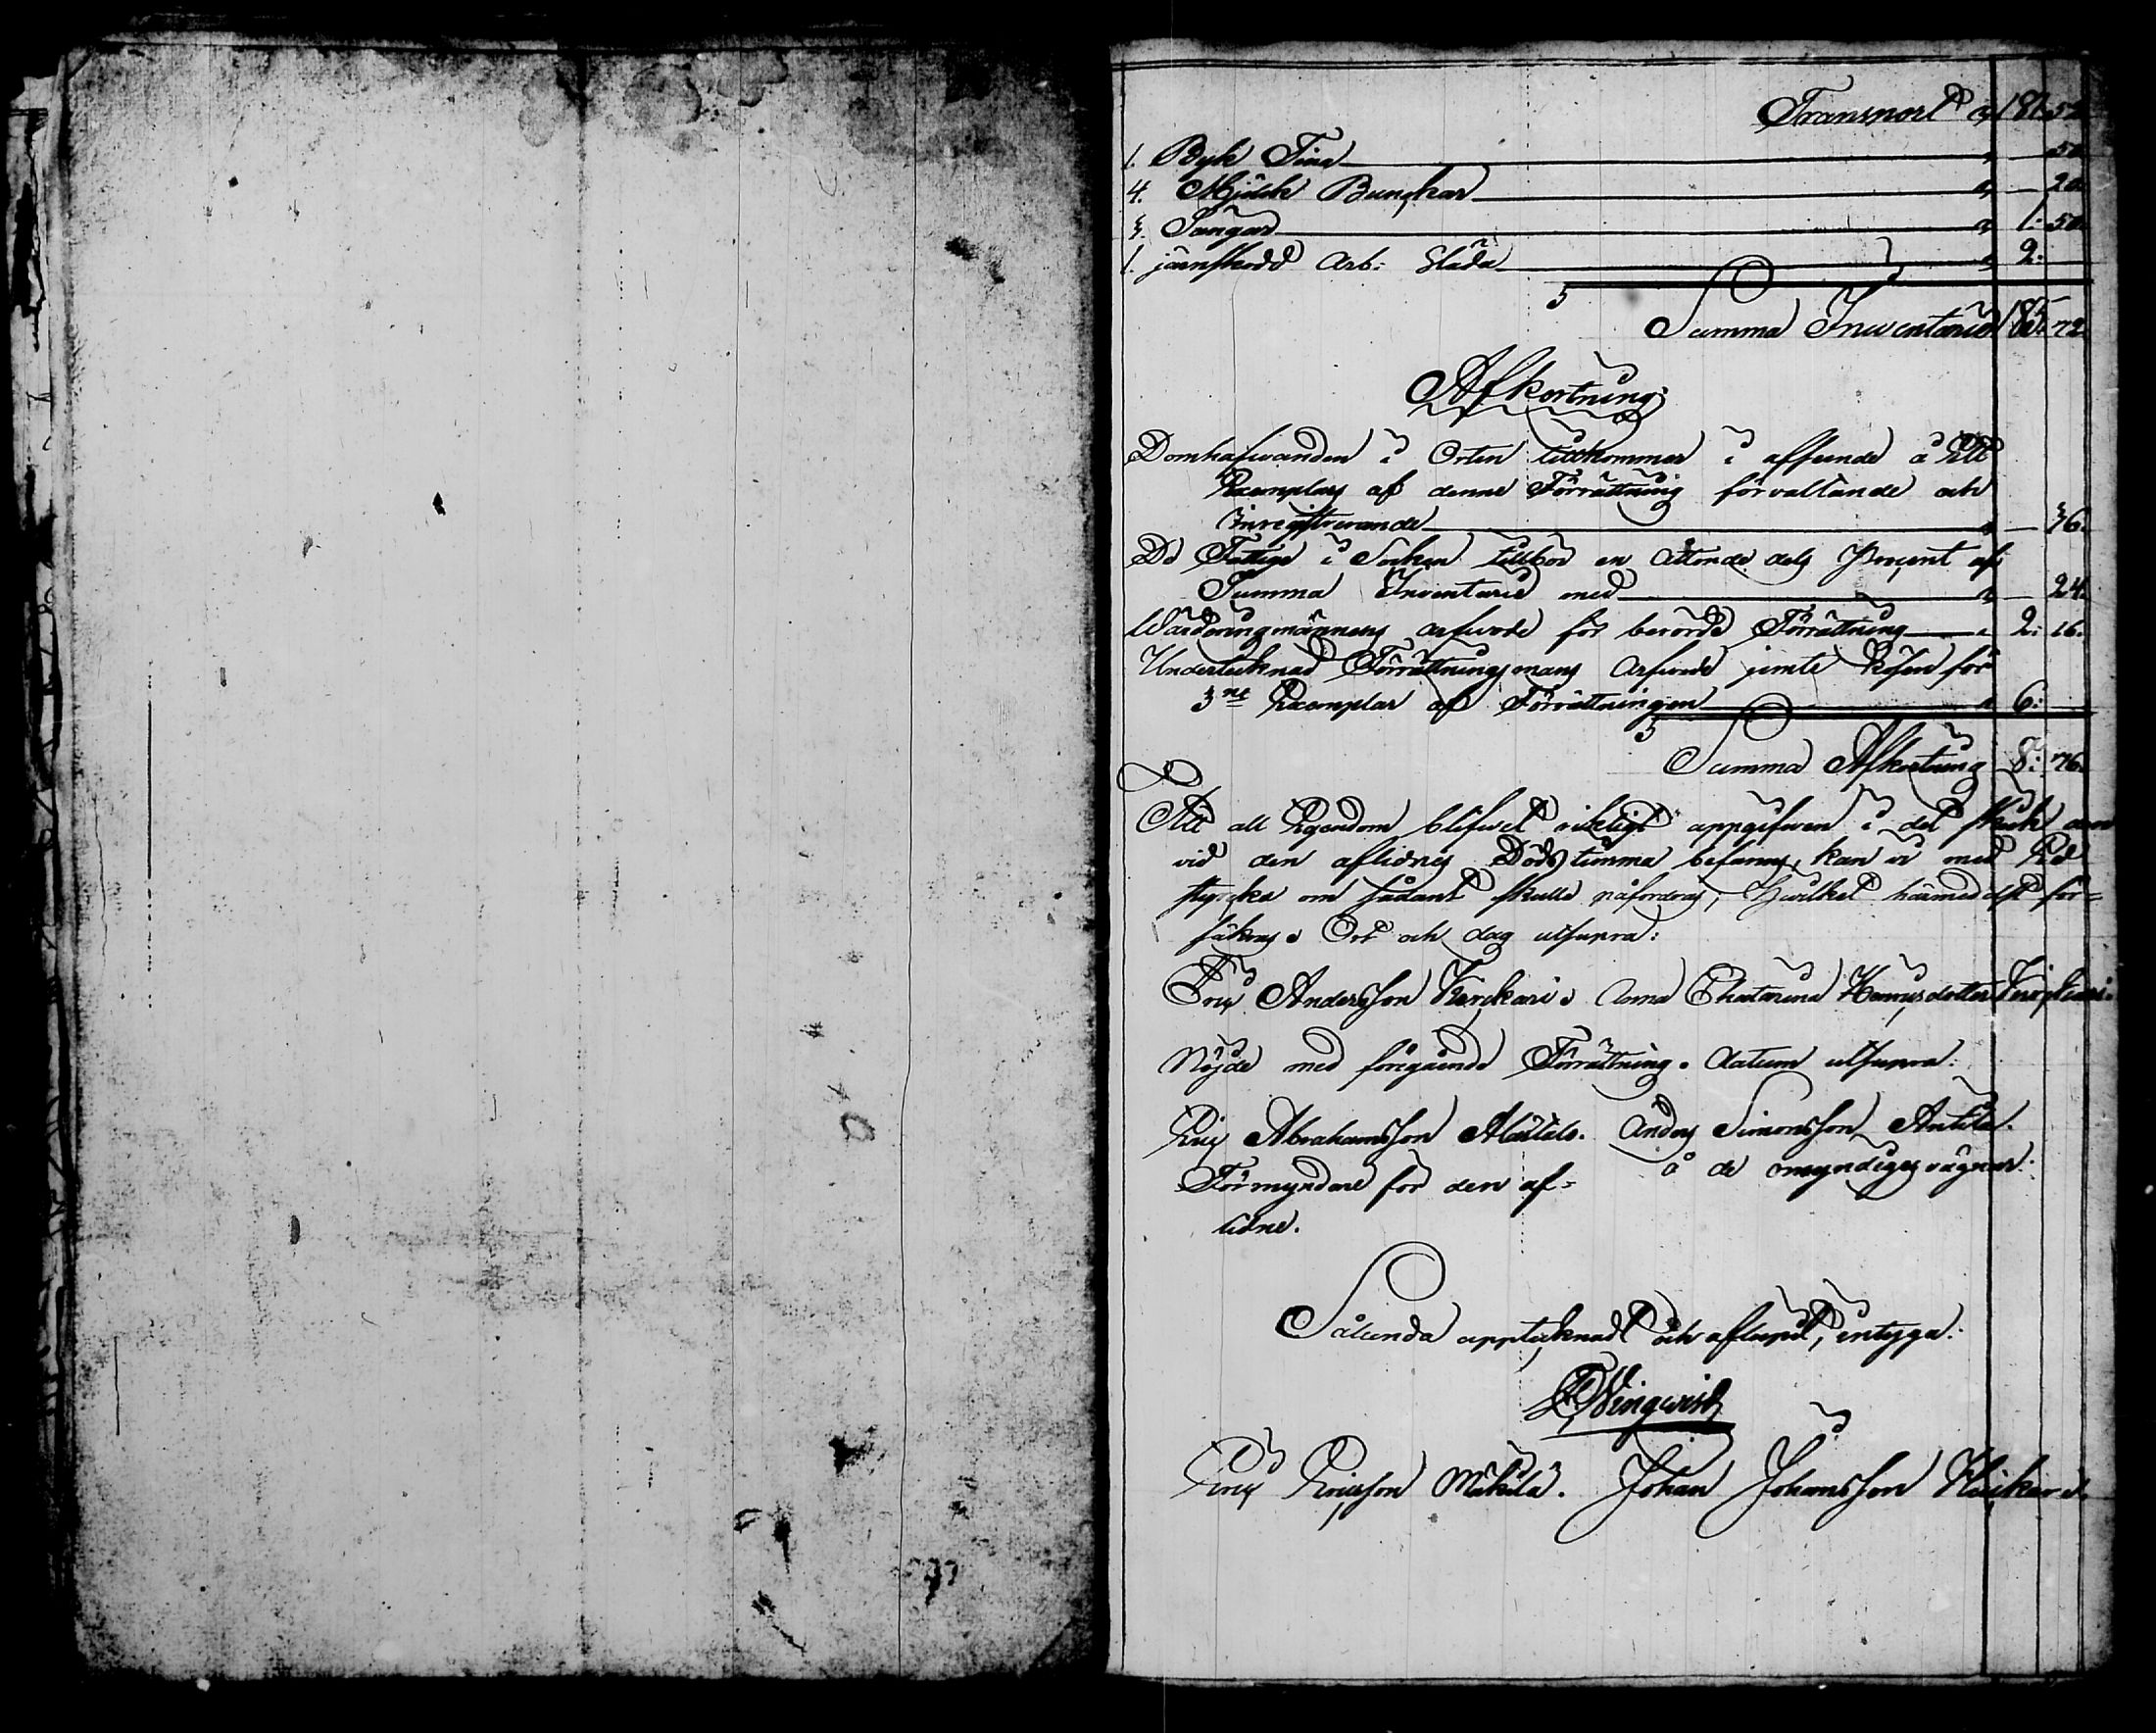 Transport " 181. 52
1. Byk Tina " — 50.
4. Mjölk Bunckar " — 20.
3. Sängar " 1: 50.
1. järnskodd Arb: Släda " 2:
Summa Inventarie 185: 72.
Afkortning:
Domhafwanden i Orten tillkommer i afseende å Ett
Exemplars af denne Förrättning förvaltande och
inregistrerande " — 36.
De Fattige i Socken tillkor en Attonde dels Procent af
Summa Inventarie med " — 24.
Wärderingmännens arfwode för berörde Förrättning " 2: 16.
Undertecknad Förrättningsmans Arfwode jemte lösen för
3ne Exemplar af Förrättningen " 6:
Summa Afkortning 8: 76.
Att all Egendom blifwet riktigt uppgifwen i det skick den
vid den aflidnes Dödstimma befanns, kan vi med Ed
styrcka om sådant skulle påfordras, Hwilket härmedelst för=
säkras. Ort och dag utsupra:
Eric Andersson Kerckari. Anna Chatarina Hannusdotter Kerckari.
Nöjde med föregående Förrättning. datum utsupra:
Eric Abrahamsson Alatalo. Anders Simonsson Antila.
Förmyndare för den af= å de omyndiges vägnar:
lidne.
Sålunda uppteknadt och aflupit, intyga:
Wingwist
Eric Ericsson Mäkilä. Johan Johansson